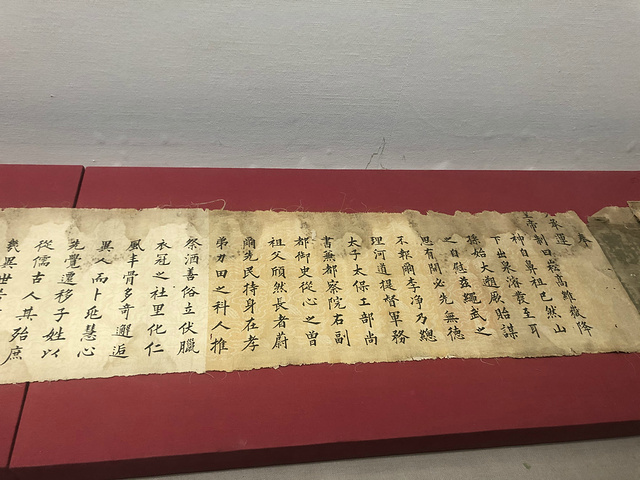 奉
承運
皇帝制曰崧高維嶽降
神自皐祖巴然山
下出泉溶發至耳
孫始大遡厥貽謀
之自慰茲繩武之
思有開必先無德
不報爾李淨乃總
理河道提督軍務
太子太保工部尚
書兼都察院右副
都御史從心之曾
祖父頎然長者蔚
爾先民持身在孝
弟力田之科人推
祭酒善俗立伏臘
衣冠之社里化仁
風丰骨多奇邂逅
異人而卜兆慧心
先覺遷移子姓以
從儒古人其殆庶
異世